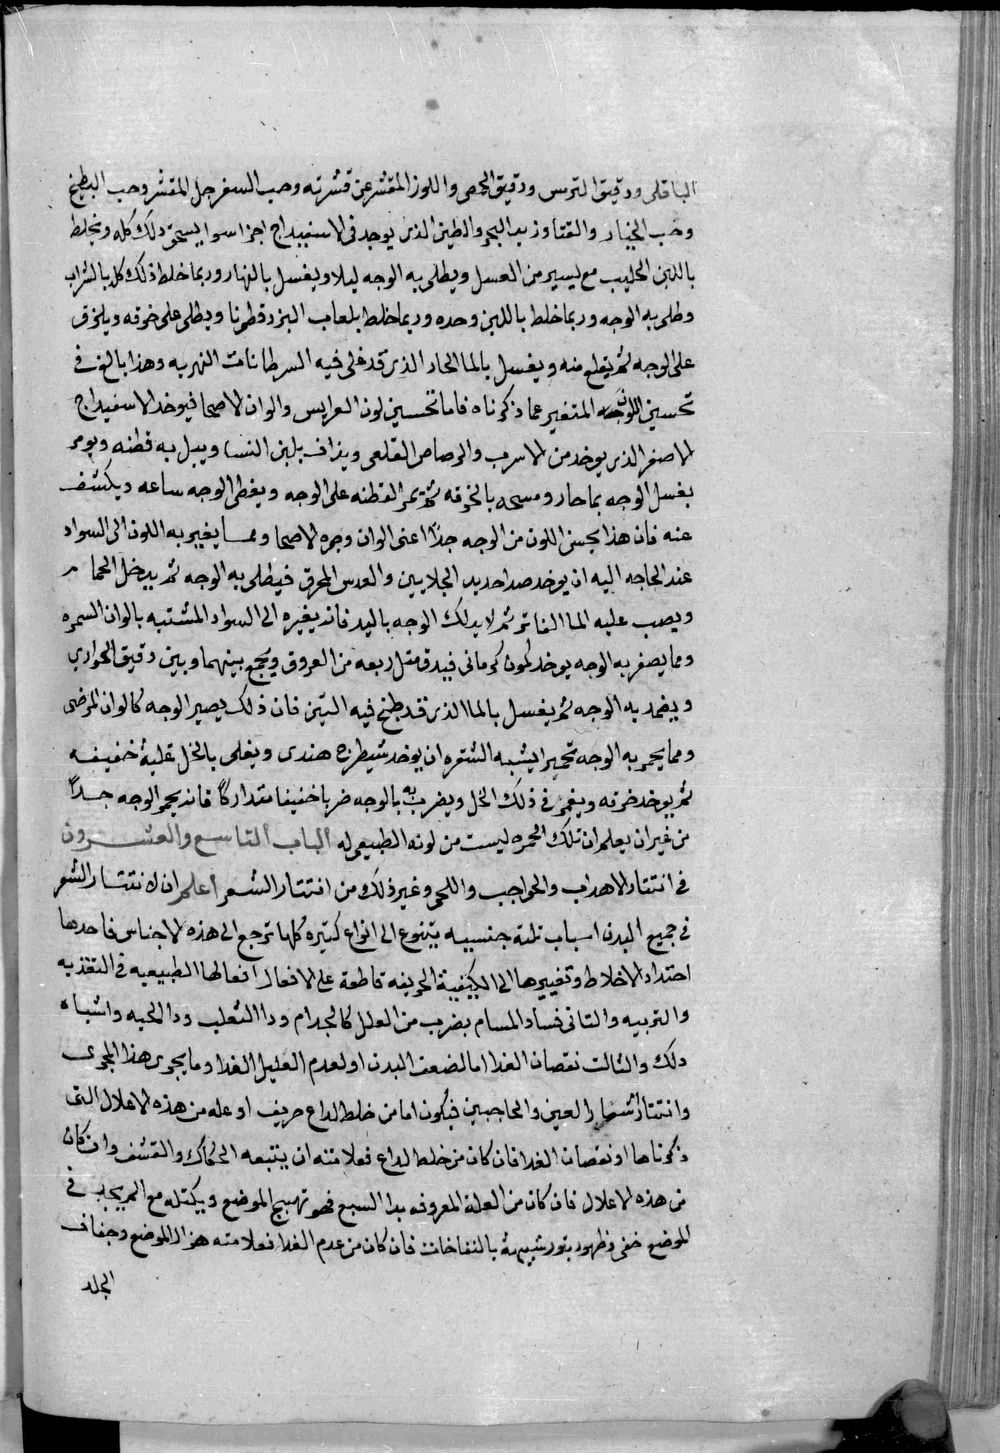 الباقلى ودقيق الترمس ودقيق الحمص واللوز المقشر عن قشرته وحب السفرجل المقشر وحب البطيخ
وحب الخيار والقثا وزبد البحر والطين الذى يوجد فى الاسفيداج اجزا سوا يسحق ذلك كله ويخلط
باللبن الحليب مع يسير من العسل ويطلى به الوجه ليلا ويغسل بالنهار وربما خلط ذلك كله بالشراب
وطلى به الوجه وربما خلط باللبن وحده وربما خلط بلعاب البزر قطونا ويطلى على خرقه ويلزق
على الوجه ثم يقلع منه ويغسل بالما الحار الذى قد غلى فيه السرطانات النهريه وهذا بالغ فى
تحسين اللون المتغير عما ذكرناه فاما تحسين لون العرايس والوان الاصحا فيوخذ الاسفيداج
الاصفر الذى يوخذ من الاسرب والرصاص القلعى ويذاف بلبن النسا ويبل به قطنه ويومر
بغسل الوجه بما حار ومسحه بالخرقه ثم تمر القطنه على الوجه ويغطى الوجه ساعه ويكشف
عنه فان هذا يحسن اللون من الوجه جدًا اعنى الوان وجوه الاصحا ومما يغير به اللون الى السواد
عند الحاجه اليه ان يوخذ صدا حديد الجلايين والعدس المحرق فيطلى به الوجه ثم يدخل الحمام
ويصب عليه الما الفاتر ثم لا يدلك الوجه باليد فانه يغيره الى السواد المشتبه بالوان السمره
ومما يصفر به الوجه يوخذ كمون كرمانى فيدق مثل ربعه من العروق ويجمع بينهما وبين دقيق الحوارى
ويضمد به الوجه ثم يغسل بالما الذى قد طبخ فيه التين فان ذلك يصير الوجه كالوان المرضى
ومما يحمر به الوجه تحميرا يشبه الشقره ان يوخذ شيطرج هندى ويغلى بالخل غلية خفيفه
ثم يوخذ خرقه ويغمر فى ذلك الخل ويضرب به بالوجه ضربا خفيفا متداركًا فانه يحمر الوجه جدًا
من غير ان يعلم ان تلك الحمره ليست من لونه الطبيعى له الباب التاسع والعشرون
فى انتثار الاهداب والحواجب واللحى وغير ذلك من انتثار الشعر اعلم ان لانتثار الشعر
فى جميع البدن اسباب ثلثة جنسيه يتنوع الى انواع كثيره كلها ترجع الى هذه الاجناس فاحدها
احتداد الاخلاط وتغييرها الى الكيفية الحريفه قاطعة على الافعال افعالها الطبيعيه فى التغذيه
والتربيه والثانى فساد المسام بضرب من العلل كالجذام ودا الثعلب ودا الحيه واشباه
ذلك والثالث نقصان الغذا اما لضعف البدن او لعدم العليل الغذا وما يجرى هذا المجرى
وانتثار اشفار العين والحاجبين فيكون اما من خلط لداع حريف او عله من هذه الاعلال التى
ذكرناها او نقصان الغذا فان كان من خلط لداع فعلامته ان يتبعه الحكاك والقشف وان كان
من هذه الاعلال فان كان من العلة المعروفه بدا السبع فهو تهيج الموضع ويكتله مع الم يجب فى
الموضع خفى وظهور بثور شبيهة بالنفاخات فان كان من عدم الغذا فعلامته هزال الموضع وجفاف
الجلد